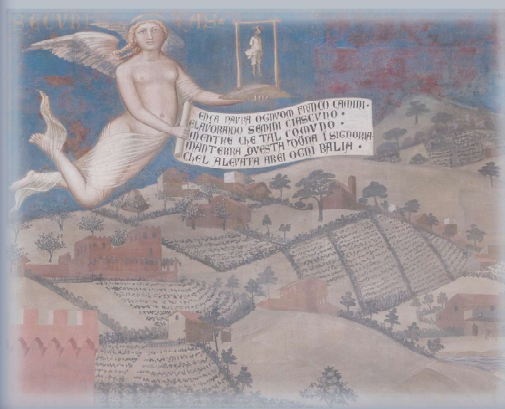 SECVRITAS
ENÇA PAVRA OGNVOM FRANCO CAMINI ·
ELAVORANDO SEMINI CIASCVNO ·
MENTRE CHE TAL COMVNO ·
MANTERRA QVESTA DONA I SIGNORIA
CHEL ALEVATA AREI OGNI BALIA ·